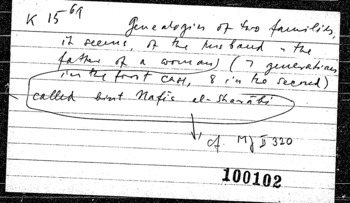 K 15 69
Genealogies of two families,
it seems, of the husband & the
father of a woman (7 generations
in the first case, 8 in the second)
called bint Nafīs al-Sharābī
cf. Mf II 320
100102